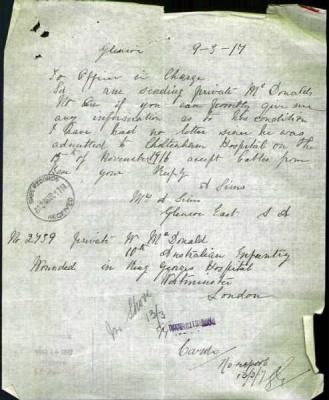 Glenroy 9-3-17
To Officer in Charge
Sir are sending private Mc Donald
to see if you can possibly give me
any information as to his Condition
I have had no letter since he was
admitted to Cheltenham Hospital on the
of November 1916 accept Cables from
your Reply
A Sims
Mrs A Sims
Glenroy East S A
No 2439 private W McDonald
10th Australian Infantry
Wounded in King Georges Hospital
Westminster
London
RECEIVED
13/3
Cards
No report
13/3/17